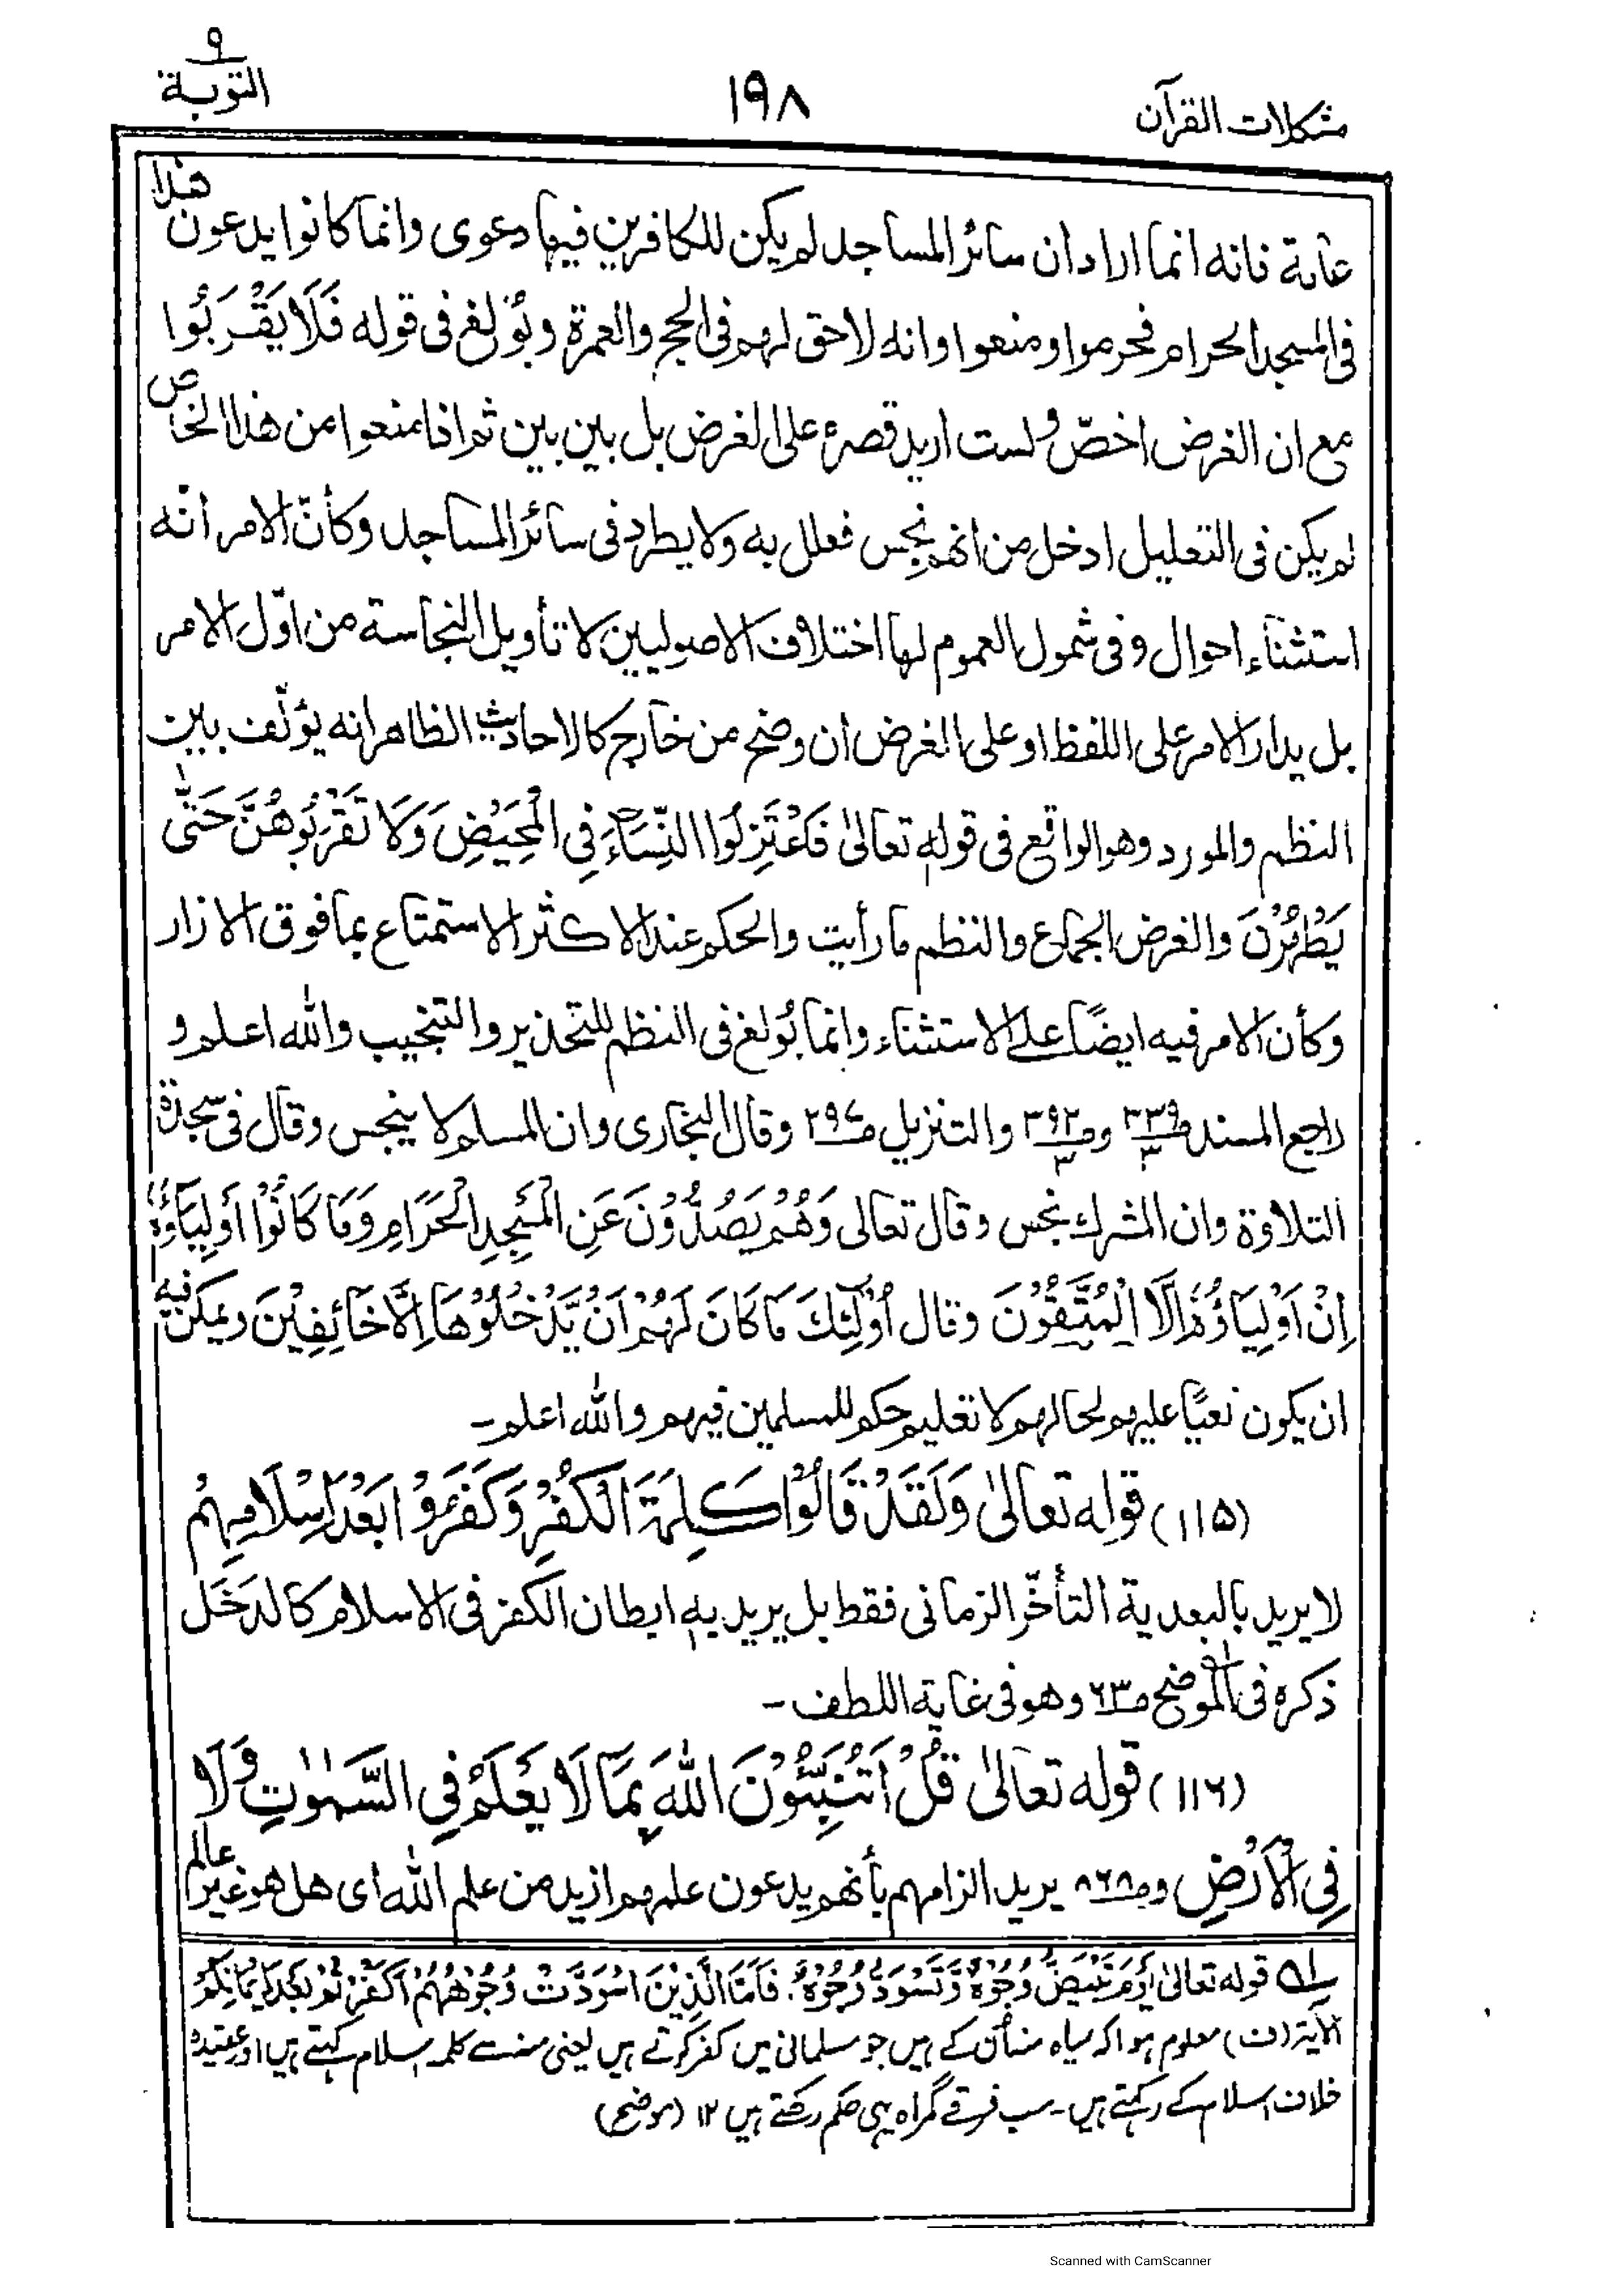 مشكلات القرآن
١٩٨
٩
التوبة
عامة فانه انما اراد ان سائر المساجد لم يكن للكافرين فيها دعوى وانما كانوا يدعون هذا
فى المسجد الحرام فحرموا ومنعوا وانه لاحق لهم فى الحج والعمرة وبُولغ فى قوله فَلَا يَقْرَبُوا
مع ان الغرض اخصّ ولست اريد قصره على الغرض بل بين بين ثم اذا منعوا من هذا الخاص
لم يكن فى التعليل ادخل من انهم نجس فعلل به ولا يطرد فى سائر المساجد وكأنّ الامر أنّه
استثناء احوال وفى شمول العموم لها اختلاف الاصوليين لا تأويل النجاسة من اوّل الامر
بل يدار الامر على اللفظ او على الغرض ان وضح من خارج كالاحاديث الظاهر انه يؤلّف بين
النظم والمورد وهو الواقع فى قوله تعالىٰ فَاعْتَزِلُوا النِّسَآءَ فِى الْمَحِيْضِ وَلَا تَقْرَبُوْهُنَّ حَتّٰى
يَطْهُرْنَ والغرض الجماع والنظم ما رأيت والحكم عند الاكثر الاستمتاع بما فوق الازار
وكأن الامر فيه ايضًا على الاستثناء وانما بُولغ فى النظم للتحذير والتجنيب والله اعلم و
راجع المسند ص٣٣٩/٣ وص٣٩٢/٣ والتنزيل ص٢٩٧ وقال البخارى وان المسلم لا ينجس وقال فى سجدة
التلاوة وان المشرك نجس وقال تعالى وَهُمْ يَصُدُّوْنَ عَنِ الْمَسْجِدِ الْحَرَامِ وَمَا كَانُوْا اَوْلِيَآءَهٗ
اِنْ اَوْلِيَآؤُهٗ اِلَّا الْمُتَّقُوْنَ وقال اُولٰٓئِكَ مَا كَانَ لَهُمْ اَنْ يَّدْخُلُوْهَا اِلَّا خَآئِفِيْنَ ويمكن فيه
ان يكون نعيًا عليهم لحالهم لا تعليم حكم للمسلمين فيهم والله اعلم ــ
(١١۵) قوله تعالىٰ وَلَقَدْ قَالُوْا كَلِمَةَ الْكُفْرِ وَكَفَرُوْا بَعْدَ اِسْلَامِهِمْ
لا يريد بالبعدية التأخّر الزمانى فقط بل يريد به ابطان الكفر فى الاسلام كالدَخَل
ذكره فى الموضح ص٦٣ وهو فى غاية اللطف ــ
(١١٦) قوله تعالىٰ قُلْ اَتُنَبِّئُوْنَ اللّٰهَ بِمَا لَا يَعْلَمُ فِى السَّمٰوٰتِ وَلَا
فِى الْاَرْضِ وص٨٦٨ يريد الزامهم بأنهم يدعون علمهم ازيد من علم الله اى هل هو غير عالم
ـه١ قوله تعالىٰ يَوْمَ تَبْيَضُّ وُجُوْهٌ وَّتَسْوَدُّ وُجُوْهٌ. فَاَمَّا الَّذِيْنَ اسْوَدَّتْ وُجُوْهُهُمْ اَكَفَرْتُمْ بَعْدَ اِيْمَانِكُمْ
الآية (ف) معلوم ہوا کہ سیاہ منہ اُن کے ہیں جو مسلمانی میں کفر کرتے ہیں یعنی منہ سے کلمہ اسلام کہتے ہیں اور عقیدہ
خلاف اسلام کے رکھتے ہیں۔ سب فرقے گمراہ یہی حکم رکھتے ہیں ١٢ (موضح)
Scanned with CamScanner